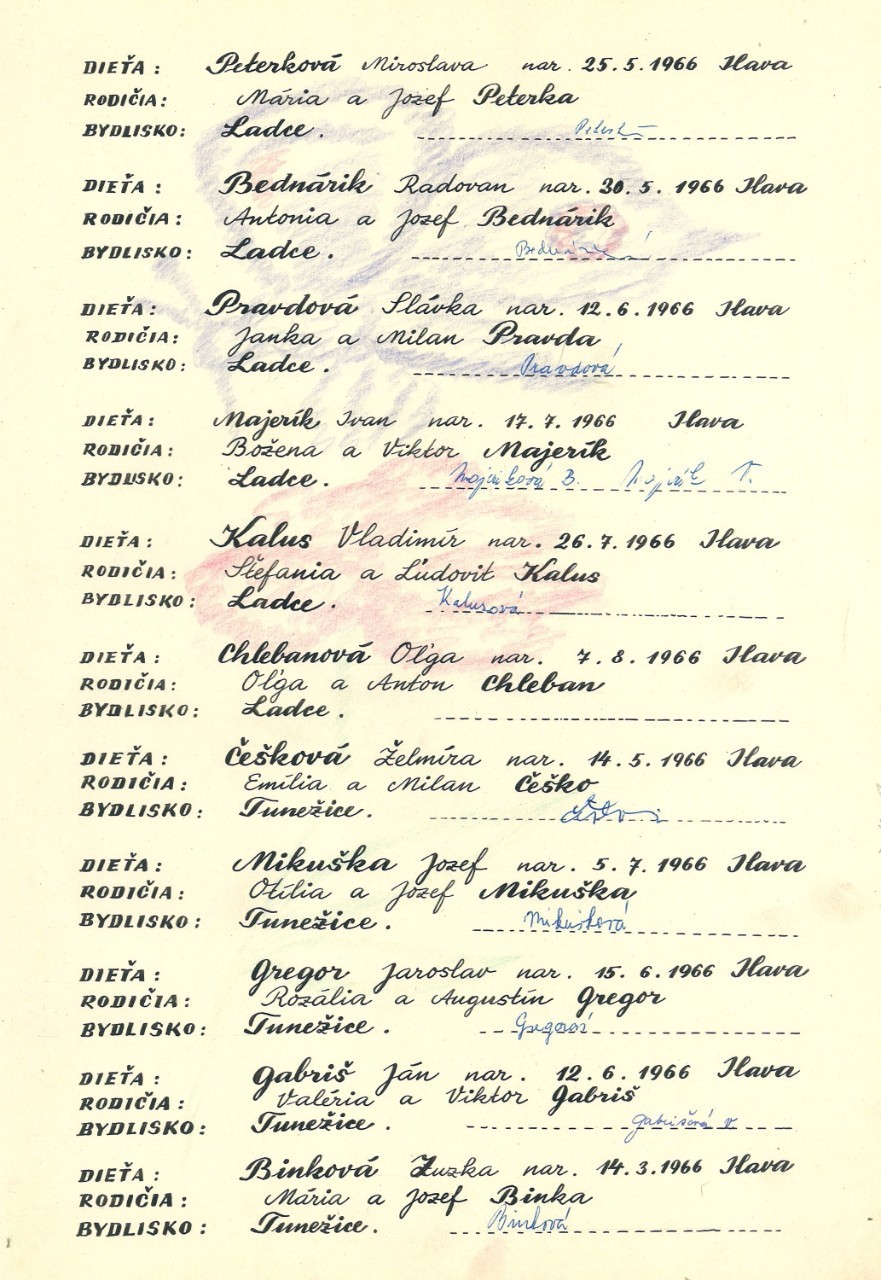 DIEŤA: Peterková Miroslava nar. 25.5.1966 Ilava
RODIČIA: Mária a Jozef Peterka
BYDLISKO: Ladce.
DIEŤA: Bednárik Radovan nar. 30.5.1966 Ilava
RODIČIA: Antonia a Jozef Bednárik
BYDLISKO: Ladce.
DIEŤA: Pravdová Slávka nar. 12.6.1966 Ilava
RODIČIA: Janka a Milan Pravda
BYDLISKO: Ladce. Pravdová
DIEŤA: Majerík Ivan nar. 17.7.1966 Ilava
RODIČIA: Božena a Viktor Majerík
BYDLISKO: Ladce. Majeríková B. Majerík V.
DIEŤA: Kalus Vladimír nar. 26.7.1966 Ilava
RODIČIA: Štefania a Ľudovit Kalus
BYDLISKO: Ladce. Kalusová
DIEŤA: Chlebanová Oľga nar. 7.8.1966 Ilava
RODIČIA: Oľga a Anton Chleban
BYDLISKO: Ladce.
DIEŤA: Češková Želmíra nar. 14.5.1966 Ilava
RODIČIA: Emília a Milan Češko
BYDLISKO: Tunežice.
DIEŤA: Mikuška Jozef nar. 5.7.1966 Ilava
RODIČIA: Otília a Jozef Mikuška
BYDLISKO: Tunežice. Mikušková
DIEŤA: Gregor Jaroslav nar. 15.6.1966 Ilava
RODIČIA: Rozália a Augustín Gregor
BYDLISKO: Tunežice.
DIEŤA: Gabriš Ján nar. 12.6.1966 Ilava
RODIČIA: Valéria a Viktor Gabriš
BYDLISKO: Tunežice. Gabrišová V.
DIEŤA: Binková Zuzka nar. 14.3.1966 Ilava
RODIČIA: Mária a Jozef Binka
BYDLISKO: Tunežice. Binková